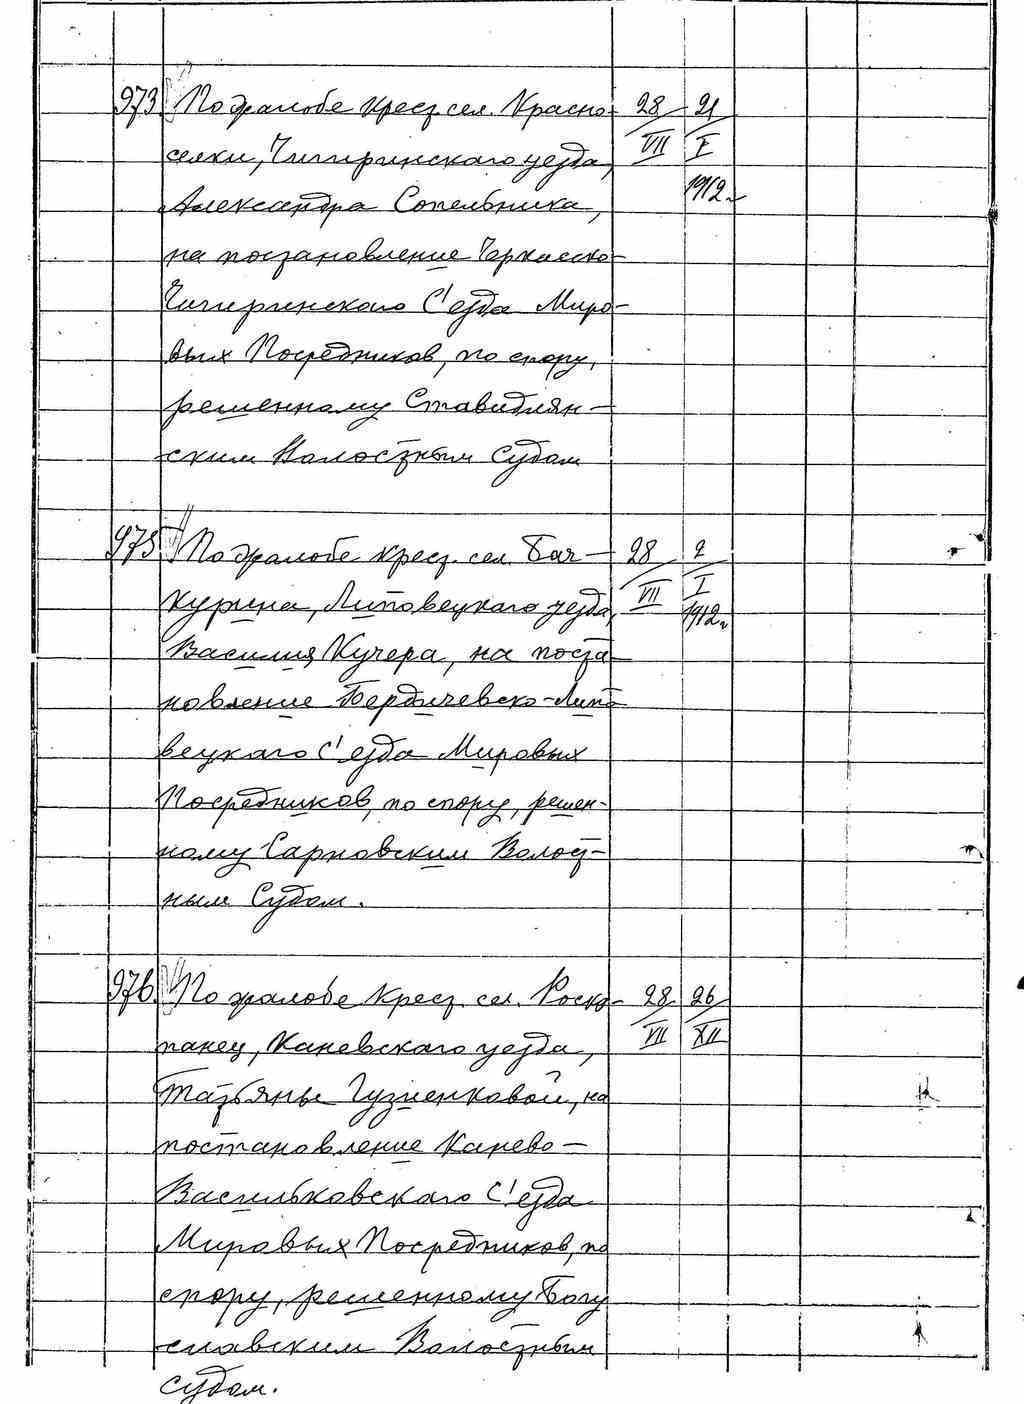 973. По жалобе крест. сел. Красно- 28/VII 21/I 1912 г.
селки, Чигиринскаго уезда,
Александра Сопельника,
на постановление Черкасско-
Чигиринскаго С'езда Миро-
вых Посредников, по спору,
решенному Ставидлян-
ским Волостным Судом
975 По жалобе крест. сел. Бач- 28/VII 2/I 1912 г.
курина, Липовецкаго уезда,
Василия Кучера, на поста-
новление Бердичевско-Липо
вецкаго С'езда Мировых
Посредников, по спору, решен-
ному Сарновским Волост-
ным Судом.
976. По жалобе крест. сел. Роско- 28/VII 26/XII
панец, Каневскаго уезда,
Татьяны Гузненковой, на
постановление Канево-
Васильковскаго С'езда
Мировых Посредников, по
спору, решенному Богу
славским Волостным
Судом.